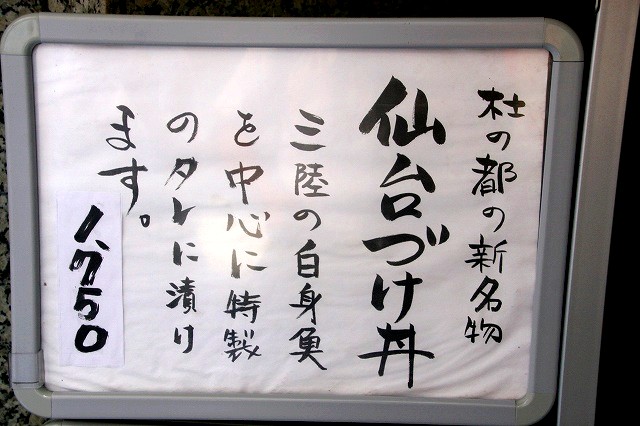 杜の都の新名物
仙台づけ丼
三陸の白身魚
を中心に特製
のタレに漬け
ます。
1,750